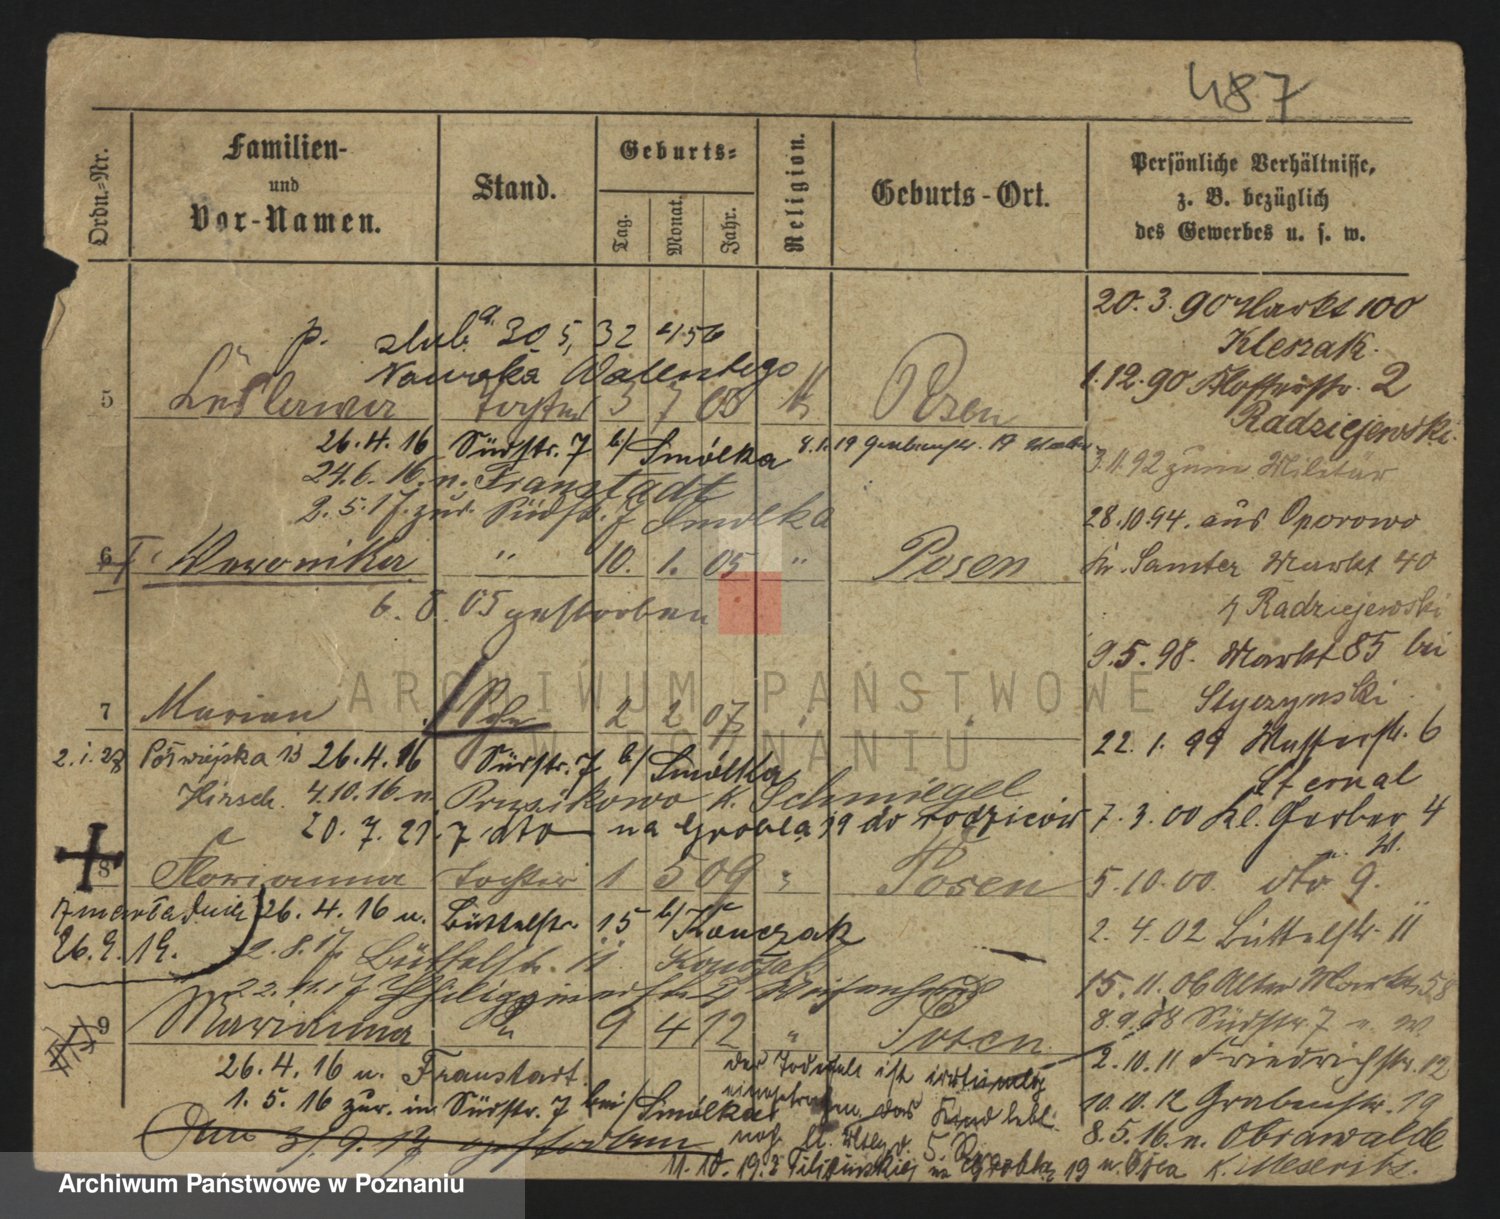 487
Ordn.-Nr.
Familien-
und
Vor-Namen.
Stand.
Geburts-
Tag.
Monat.
Jahr.
Religion.
Geburts-Ort.
Persönliche Verhältnisse,
z. B. bezüglich
des Gewerbes u. s. w.
p. ślub 30 5, 32 456
Nawroka Walentego
5 Lesława Tochter 3 7 03 k Posen
26.4.16 Südstr. 7 b/ Smólka 8.1.19 Grabenstr. 19
24.6.16. n. Fraustadt
2.5.17. zur. Südstr. 7 Smolka
6 Weronika " 10. 1. 05 " Posen
6. 8. 05 gestorben
7 Marian Sohn 2 2 07 "
2.1.28 Półwiejska 13 26.4.16 Südstr. 7 b/ Smólka
Hirsch. 4.10.16 n. K. Schmiegel
20. 7. 21. 7 dto na Grobla 19 do rodziców
8 Florianna Tochter 1 5 09 " Posen
Zmarła dnia 26.4.16 u. Büttelstr. 15 b/ Kończak
26.9.19. 2.8.17. Büttelstr. 11
22.11.17
9 Marianna " 9 4 12 " Posen
26.4.16 n. Fraustadt.
1.5.16 zur. in Südstr. 7 bei/Smólka
der Todesfall ist irrtümlig
eingetragen, das Kind lebt.
Am 3/.9.17 gestorben
noch
11.10.19.
20.3.90 Markt 100
Kleszak.
1.12.90 Klosterstr. 2
Radziejewski.
3.11.92 zum Militär
28.10.94. aus Oporowo
Kr. Samter Markt 40
Radziejewski
9.5.98. Markt 85 bei
Styczynski
22.1.99 6
Sternal
7.3.00 Kl. Gerber 4
W.
5.10.00. dto 9.
2.4.02 Büttelstr. 11
15.11.06 Alter Markt 58
8.9.08 Südstr. 7 n. W.
2.10.11 Friedrichstr. 12
10.10.12 Grabenstr. 19
8.5.16. n. Obrawalde
K. Meseritz.
ARCHIWUM PAŃSTWOWE
W POZNANIU
Archiwum Państwowe w Poznaniu